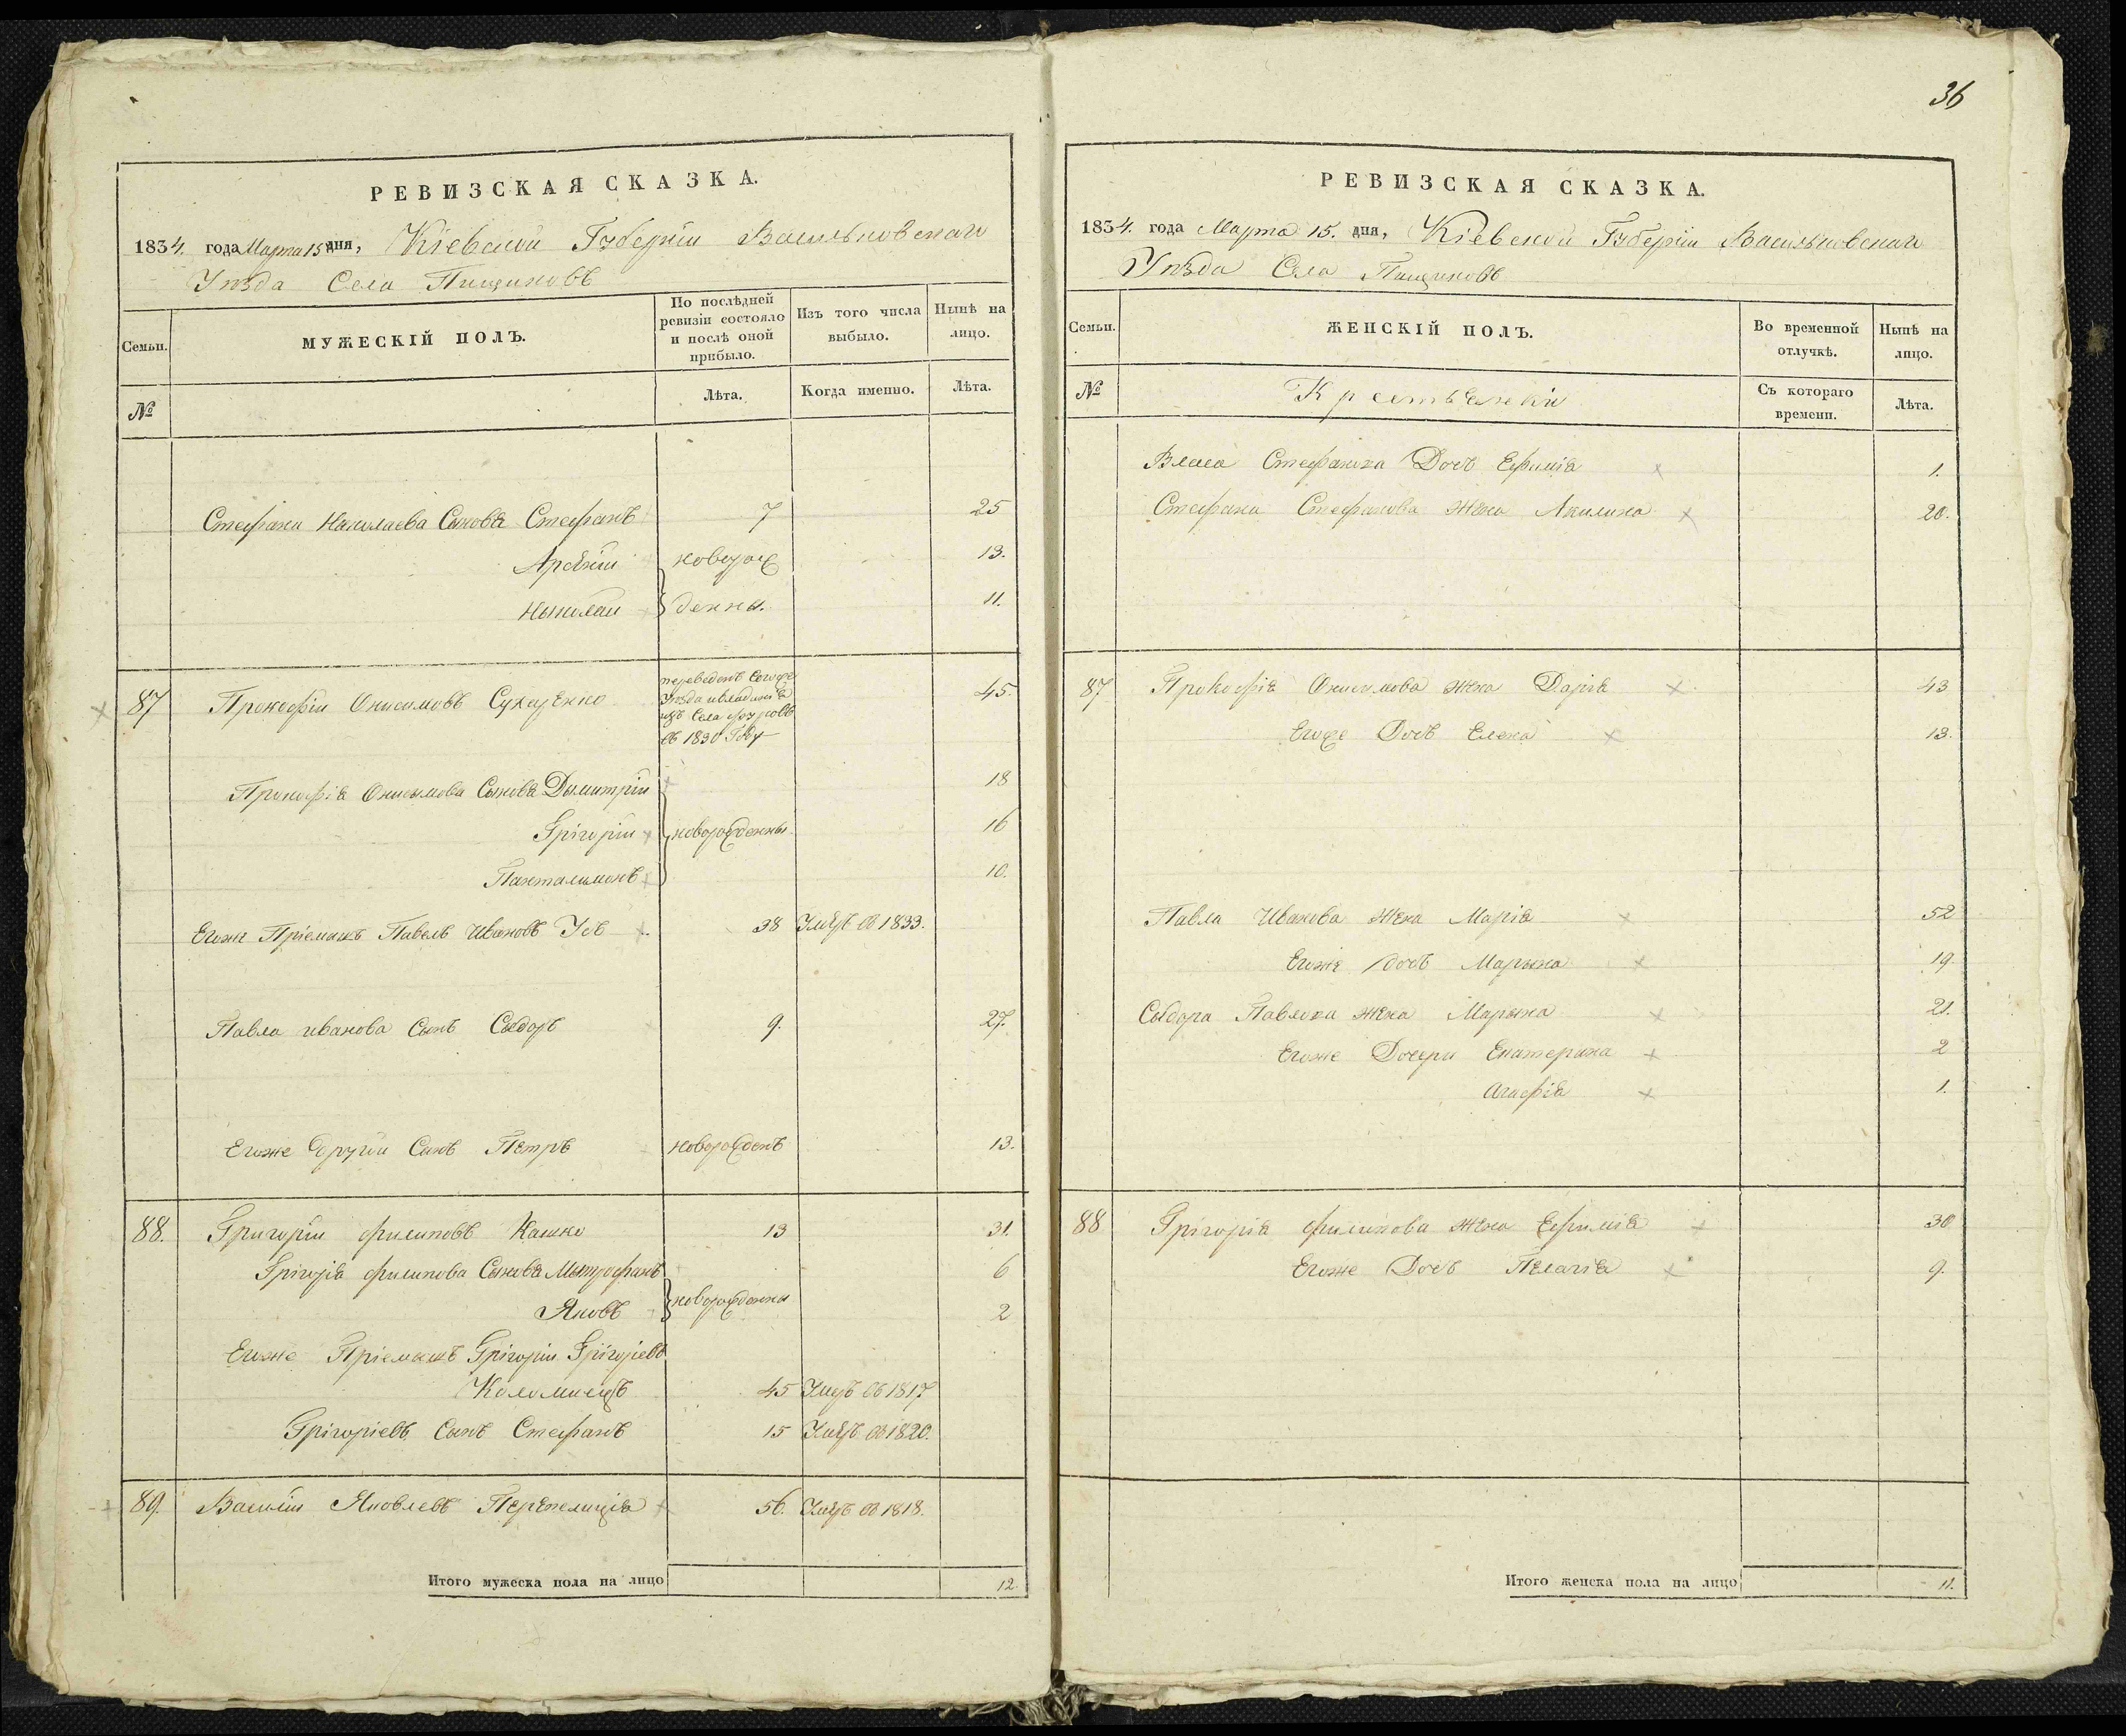 РЕВИЗСКАЯ СКАЗКА.
1834. года Марта 15 дня, Кіевской Губерніи Васильковскаго
Уѣзда Села Пищиковъ
Семьи.
МУЖЕСКІЙ ПОЛЪ.
По послѣдней
ревизіи состояло
и послѣ оной
прибыло.
Изъ того числа
выбыло.
Нынѣ на
лицо.
№
Лѣта.
Когда именно.
Лѣта.
Стефана Николаева Сынова Стефанъ 7 25
Арсеній новорож 13.
Николай денны. 11.
87 Прокофій Онисимовъ Сухаренко 45.
переведенъ Сегоже
Уѣзда
изъ Села
въ 1830 Году
Прокофія Онисимова Сынова Дымитрій 18
Григорій новорожденны 16
Панталимонъ 10.
Егоже Пріемышъ Павелъ Ивановъ Усъ 38 Умръ въ 1833.
Павла иванова Сынъ Сыдоръ 9. 27.
Егоже другій Сынъ Петръ новорожденъ 13.
88. Григорій филиповъ Кашко 13 31.
Григорія филипова Сынова Мытрофанъ 6
Яковъ новорожденны 2
Егоже Пріемышъ Григорій Григоріевъ
Коломыецъ 45 Умръ въ 1817
Григоріевъ Сынъ Стефанъ 15 Умръ въ 1820.
89. Василій Яковлевъ Перепелиція 56. Умръ въ 1818.
Итого мужеска пола на лицо 12.
36
РЕВИЗСКАЯ СКАЗКА.
1834. года Марта 15. дня, Кіевской Губерніи Васильковскаго
Уѣзда Села Пищиковъ
Семьи.
ЖЕНСКІЙ ПОЛЪ.
Во временной
отлучкѣ.
Нынѣ на
лицо.
№
Съ котораго
времени.
Лѣта.
Власа Стефанова Дочь Ефимія 1.
Стефана Стефанова жена Акилина 20.
87 Прокофія Онисимова жена Дарія 43
Егоже Дочь Елена 13.
Павла Иванова жена Марія 52
Егоже дочь Марына 19.
Сыдора Павлова жена Марына 21.
Егоже Дочери Екатерина 2
Агафія 1.
88 Григорія филипова жена Ефимія 30
Егоже Дочь Пелагія 9.
Итого женска пола на лицо 11.